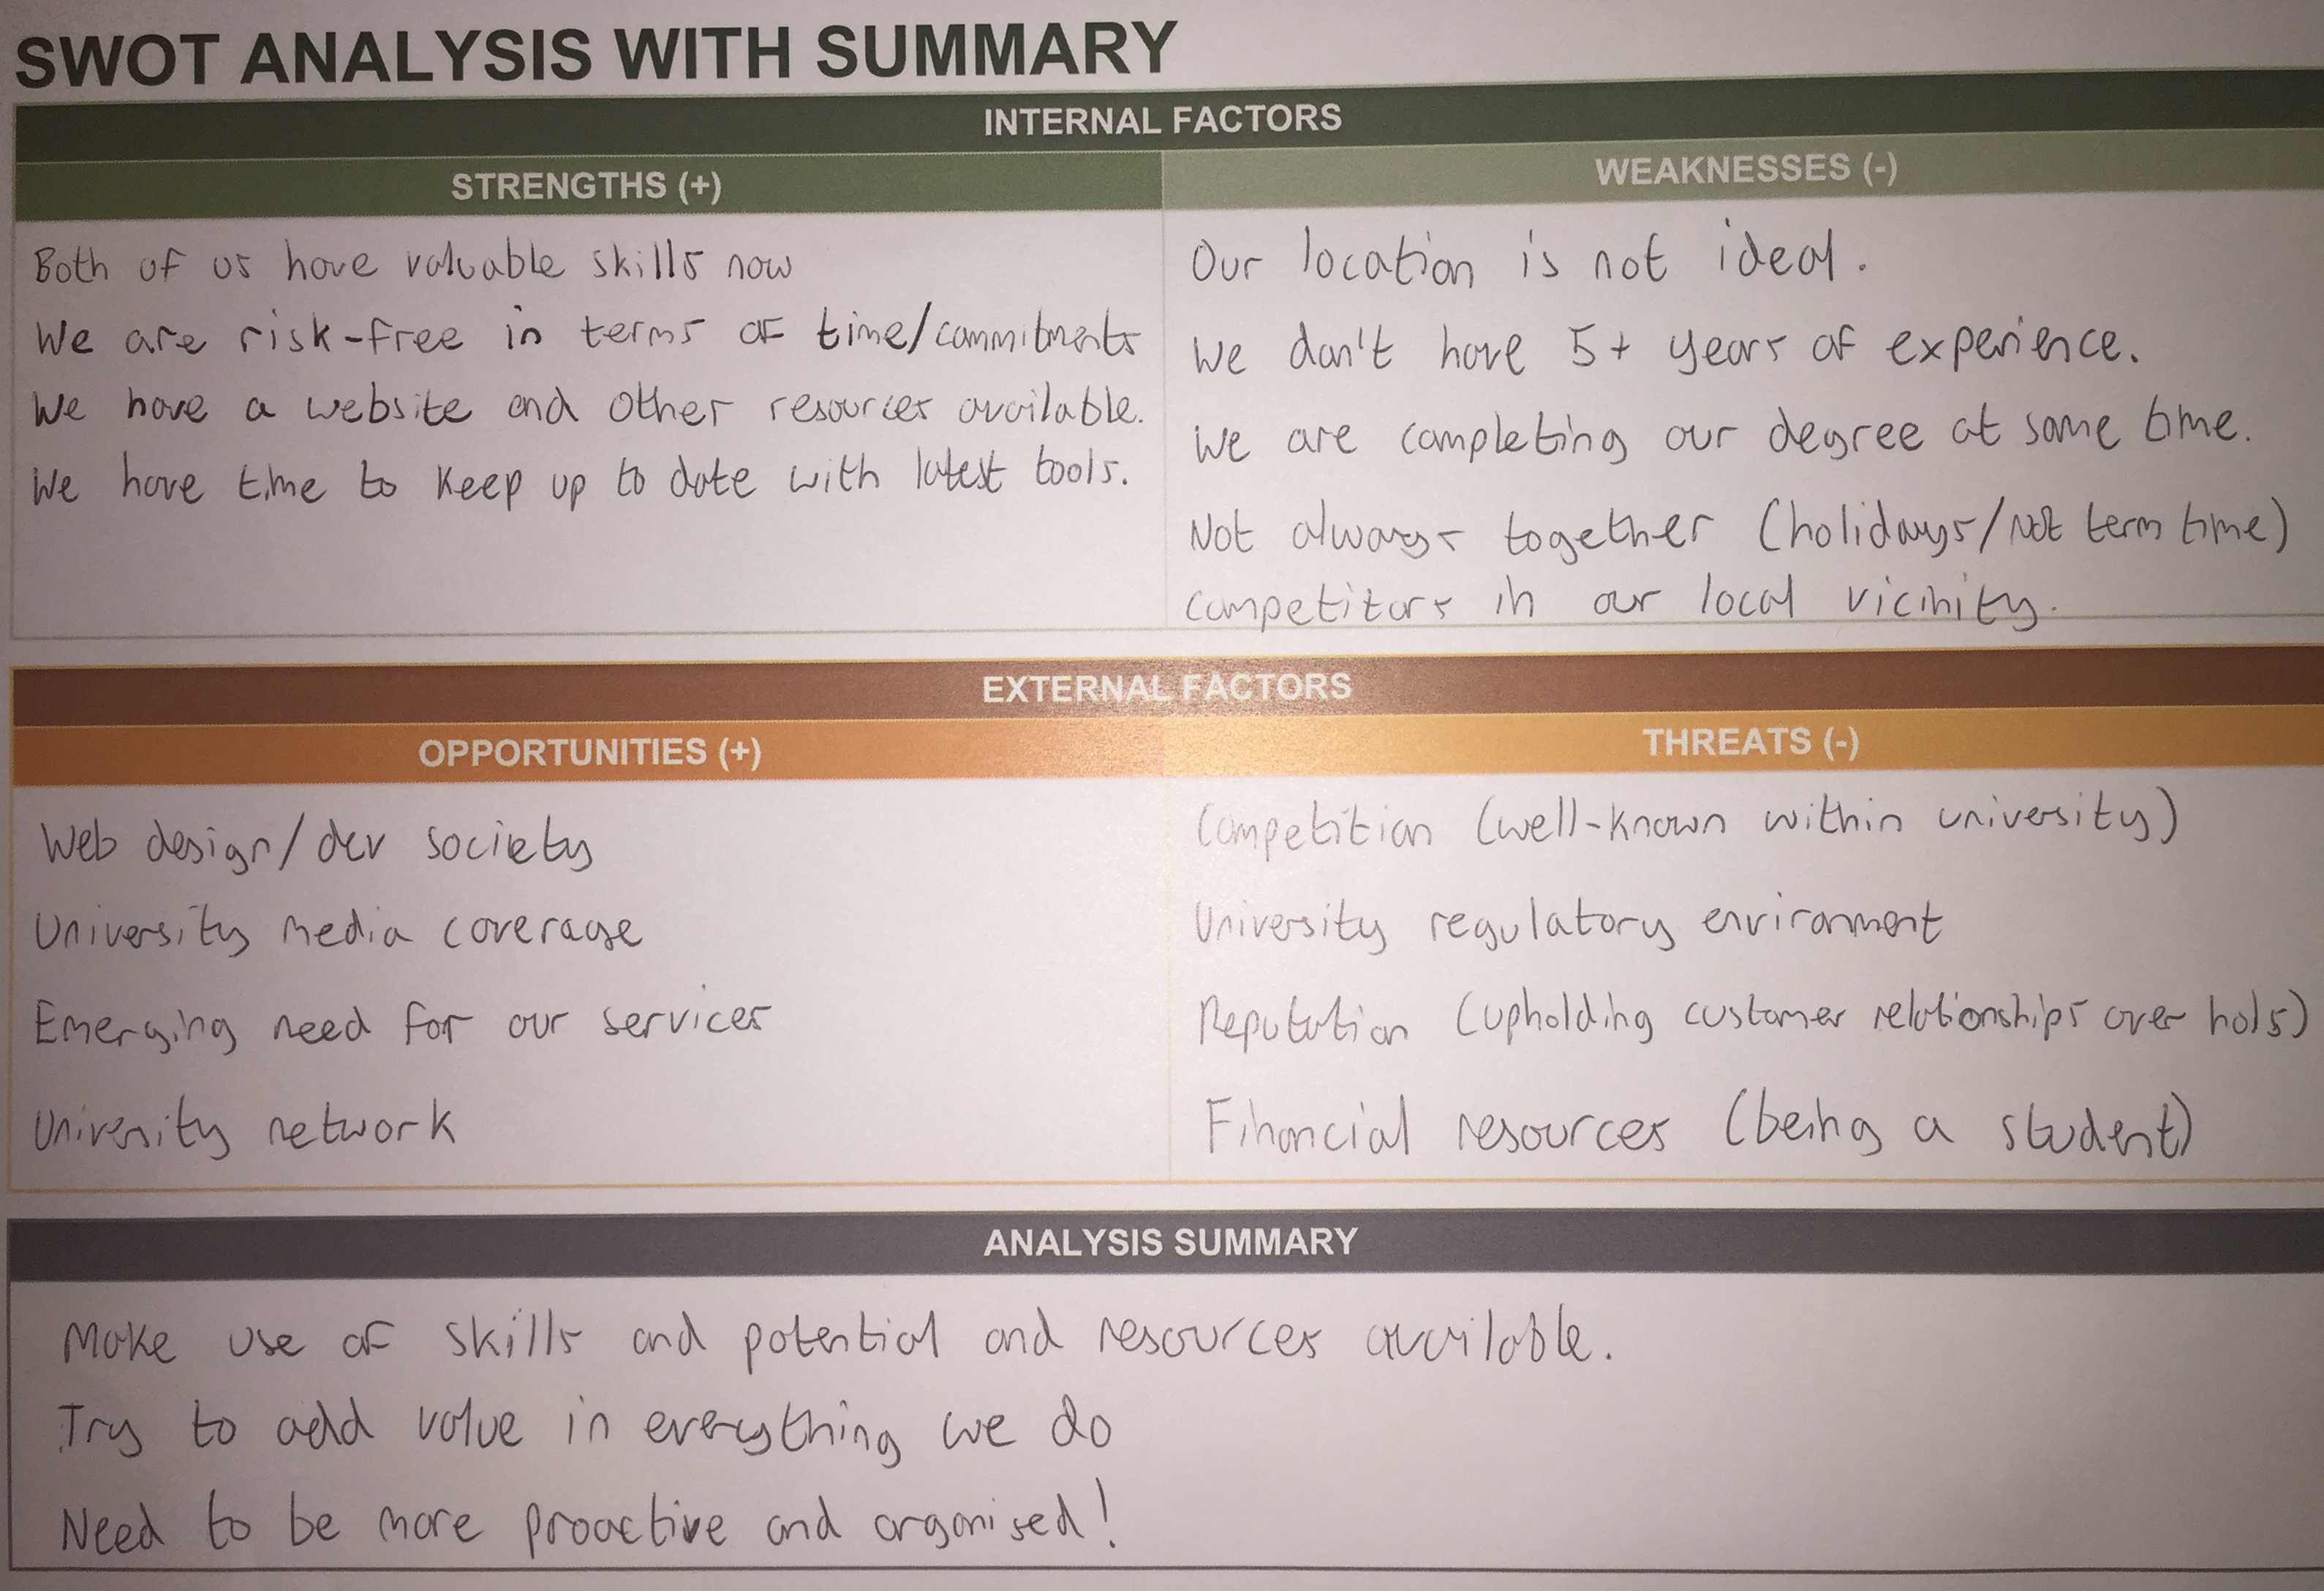 SWOT ANALYSIS WITH SUMMARY
INTERNAL FACTORS
STRENGTHS (+)
Both of us have valuable skills now
We are risk-free in terms of time/commitments
We have a website and other resources available.
We have time to keep up to date with latest tools.
WEAKNESSES (-)
Our location is not ideal.
We don't have 5+ years of experience.
We are completing our degree at same time.
Not always together (holidays/Not term time)
Competitors in our local vicinity.
EXTERNAL FACTORS
OPPORTUNITIES (+)
Web design/dev society
University media coverage
Emerging need for our services
University network
THREATS (-)
Competition (well-known within university)
University regulatory environment
Reputation (upholding customer relationships over hols)
Financial resources (being a student)
ANALYSIS SUMMARY
Make use of skills and potential and resources available.
Try to add value in everything we do
Need to be more proactive and organised!